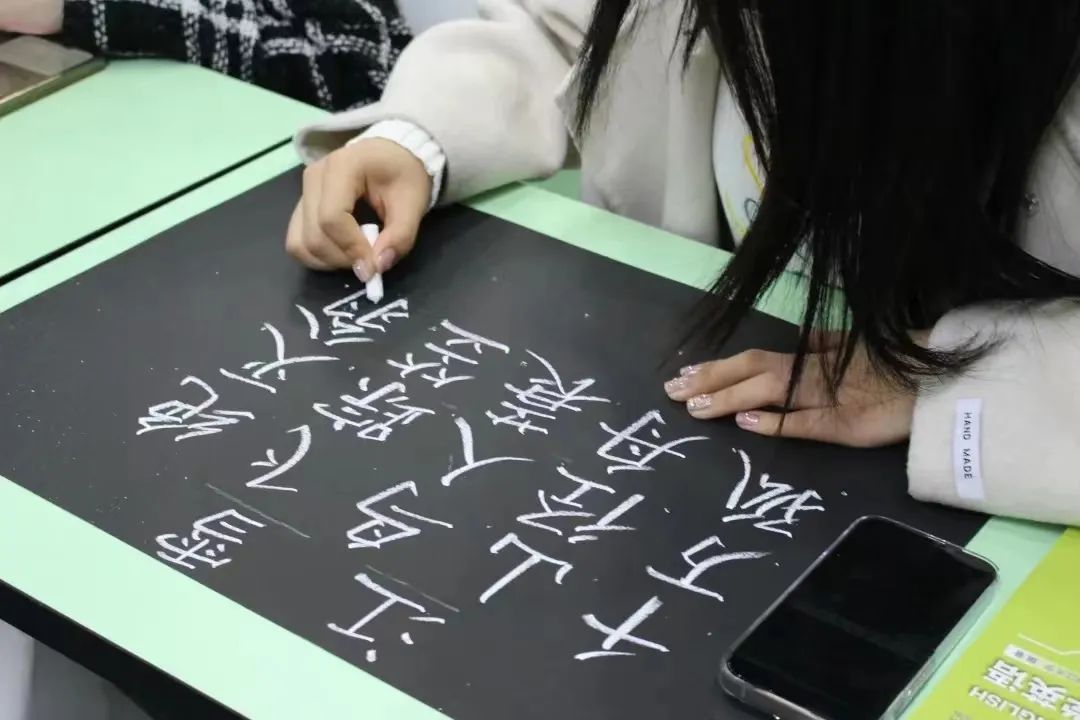 江雪
千山鸟飞绝
万径人踪灭
孤舟蓑笠翁
HAND MADE
英语